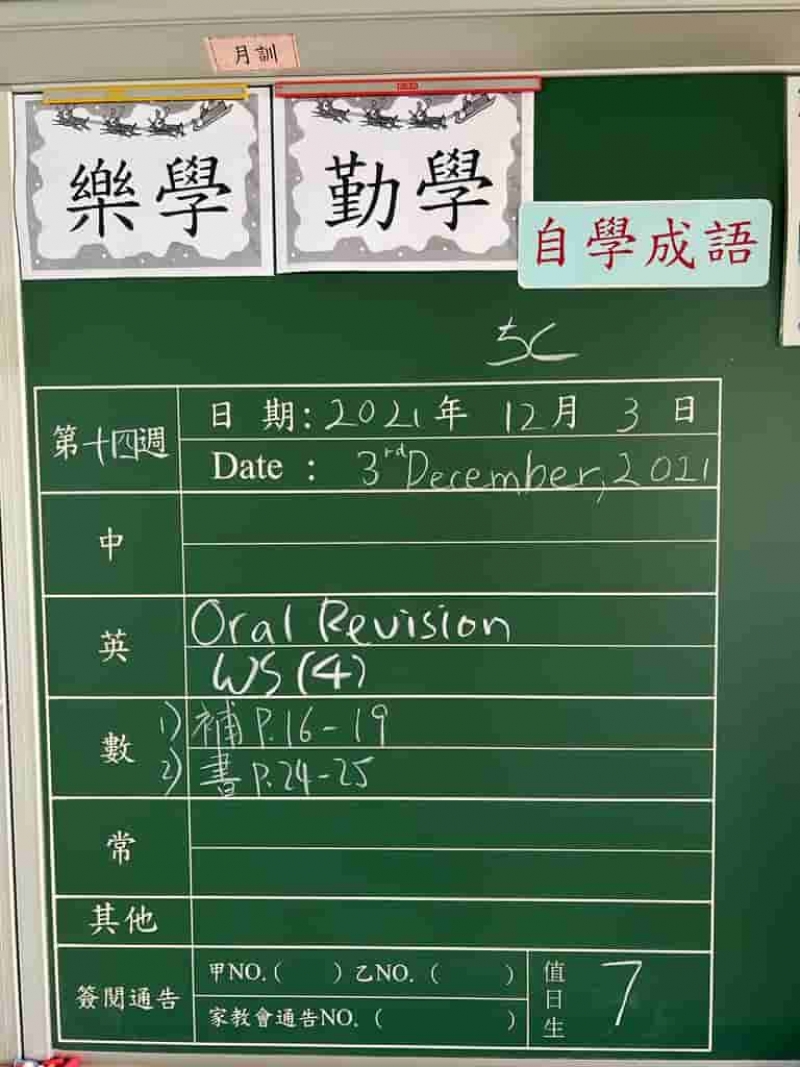 月訓
樂學
勤學
自學成語
5C
第十四週
日 期: 2021年 12月 3 日
Date : 3rd December, 2021
中
英
Oral Revision
WS (4)
數
1) 補 P.16-19
2) 書 P.24-25
常
其他
簽閱通告
甲NO.( ) 乙NO. ( )
家教會通告NO. ( )
值日生
7